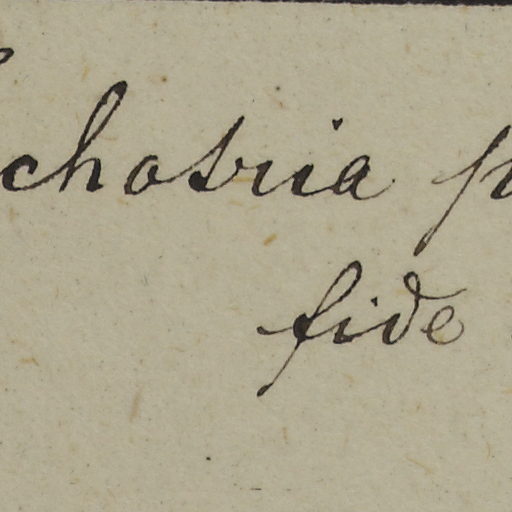 chotria p
fide